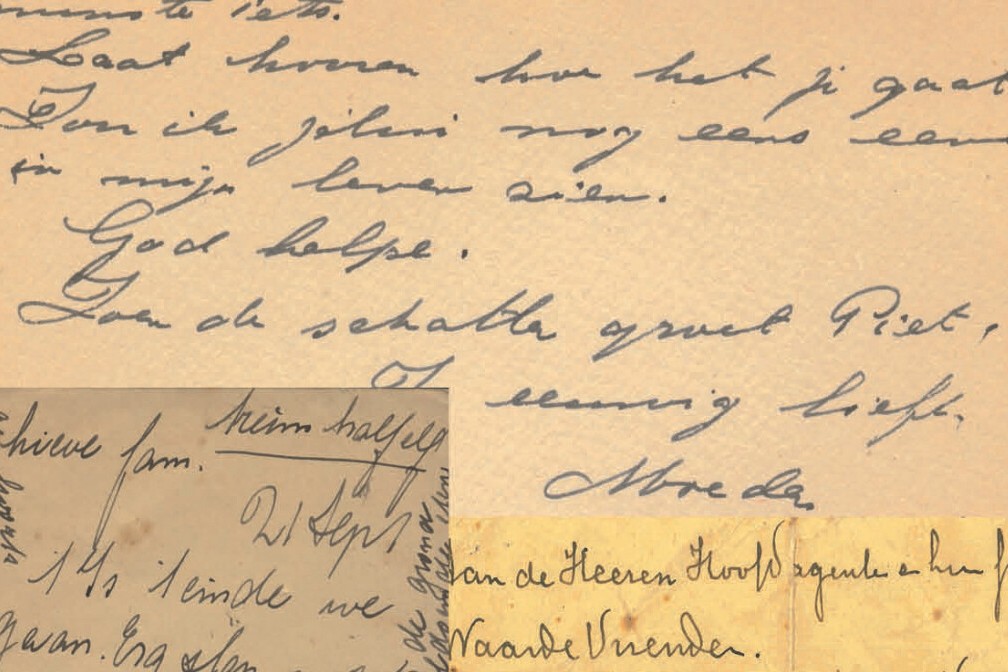 minste iets.
Laat hooren hoe het je gaat
Zou ik jelui nog eens een
in mijn leven zien.
God helpe.
Zoen de schatten groet Piet,
eeuwig liefh.
Moeder
Ruim half elf
fam.
21 Sept
't Is 't einde we
gaan. Erg
van de Heeren Hoofdagenten en hun
Waarde Vrienden.